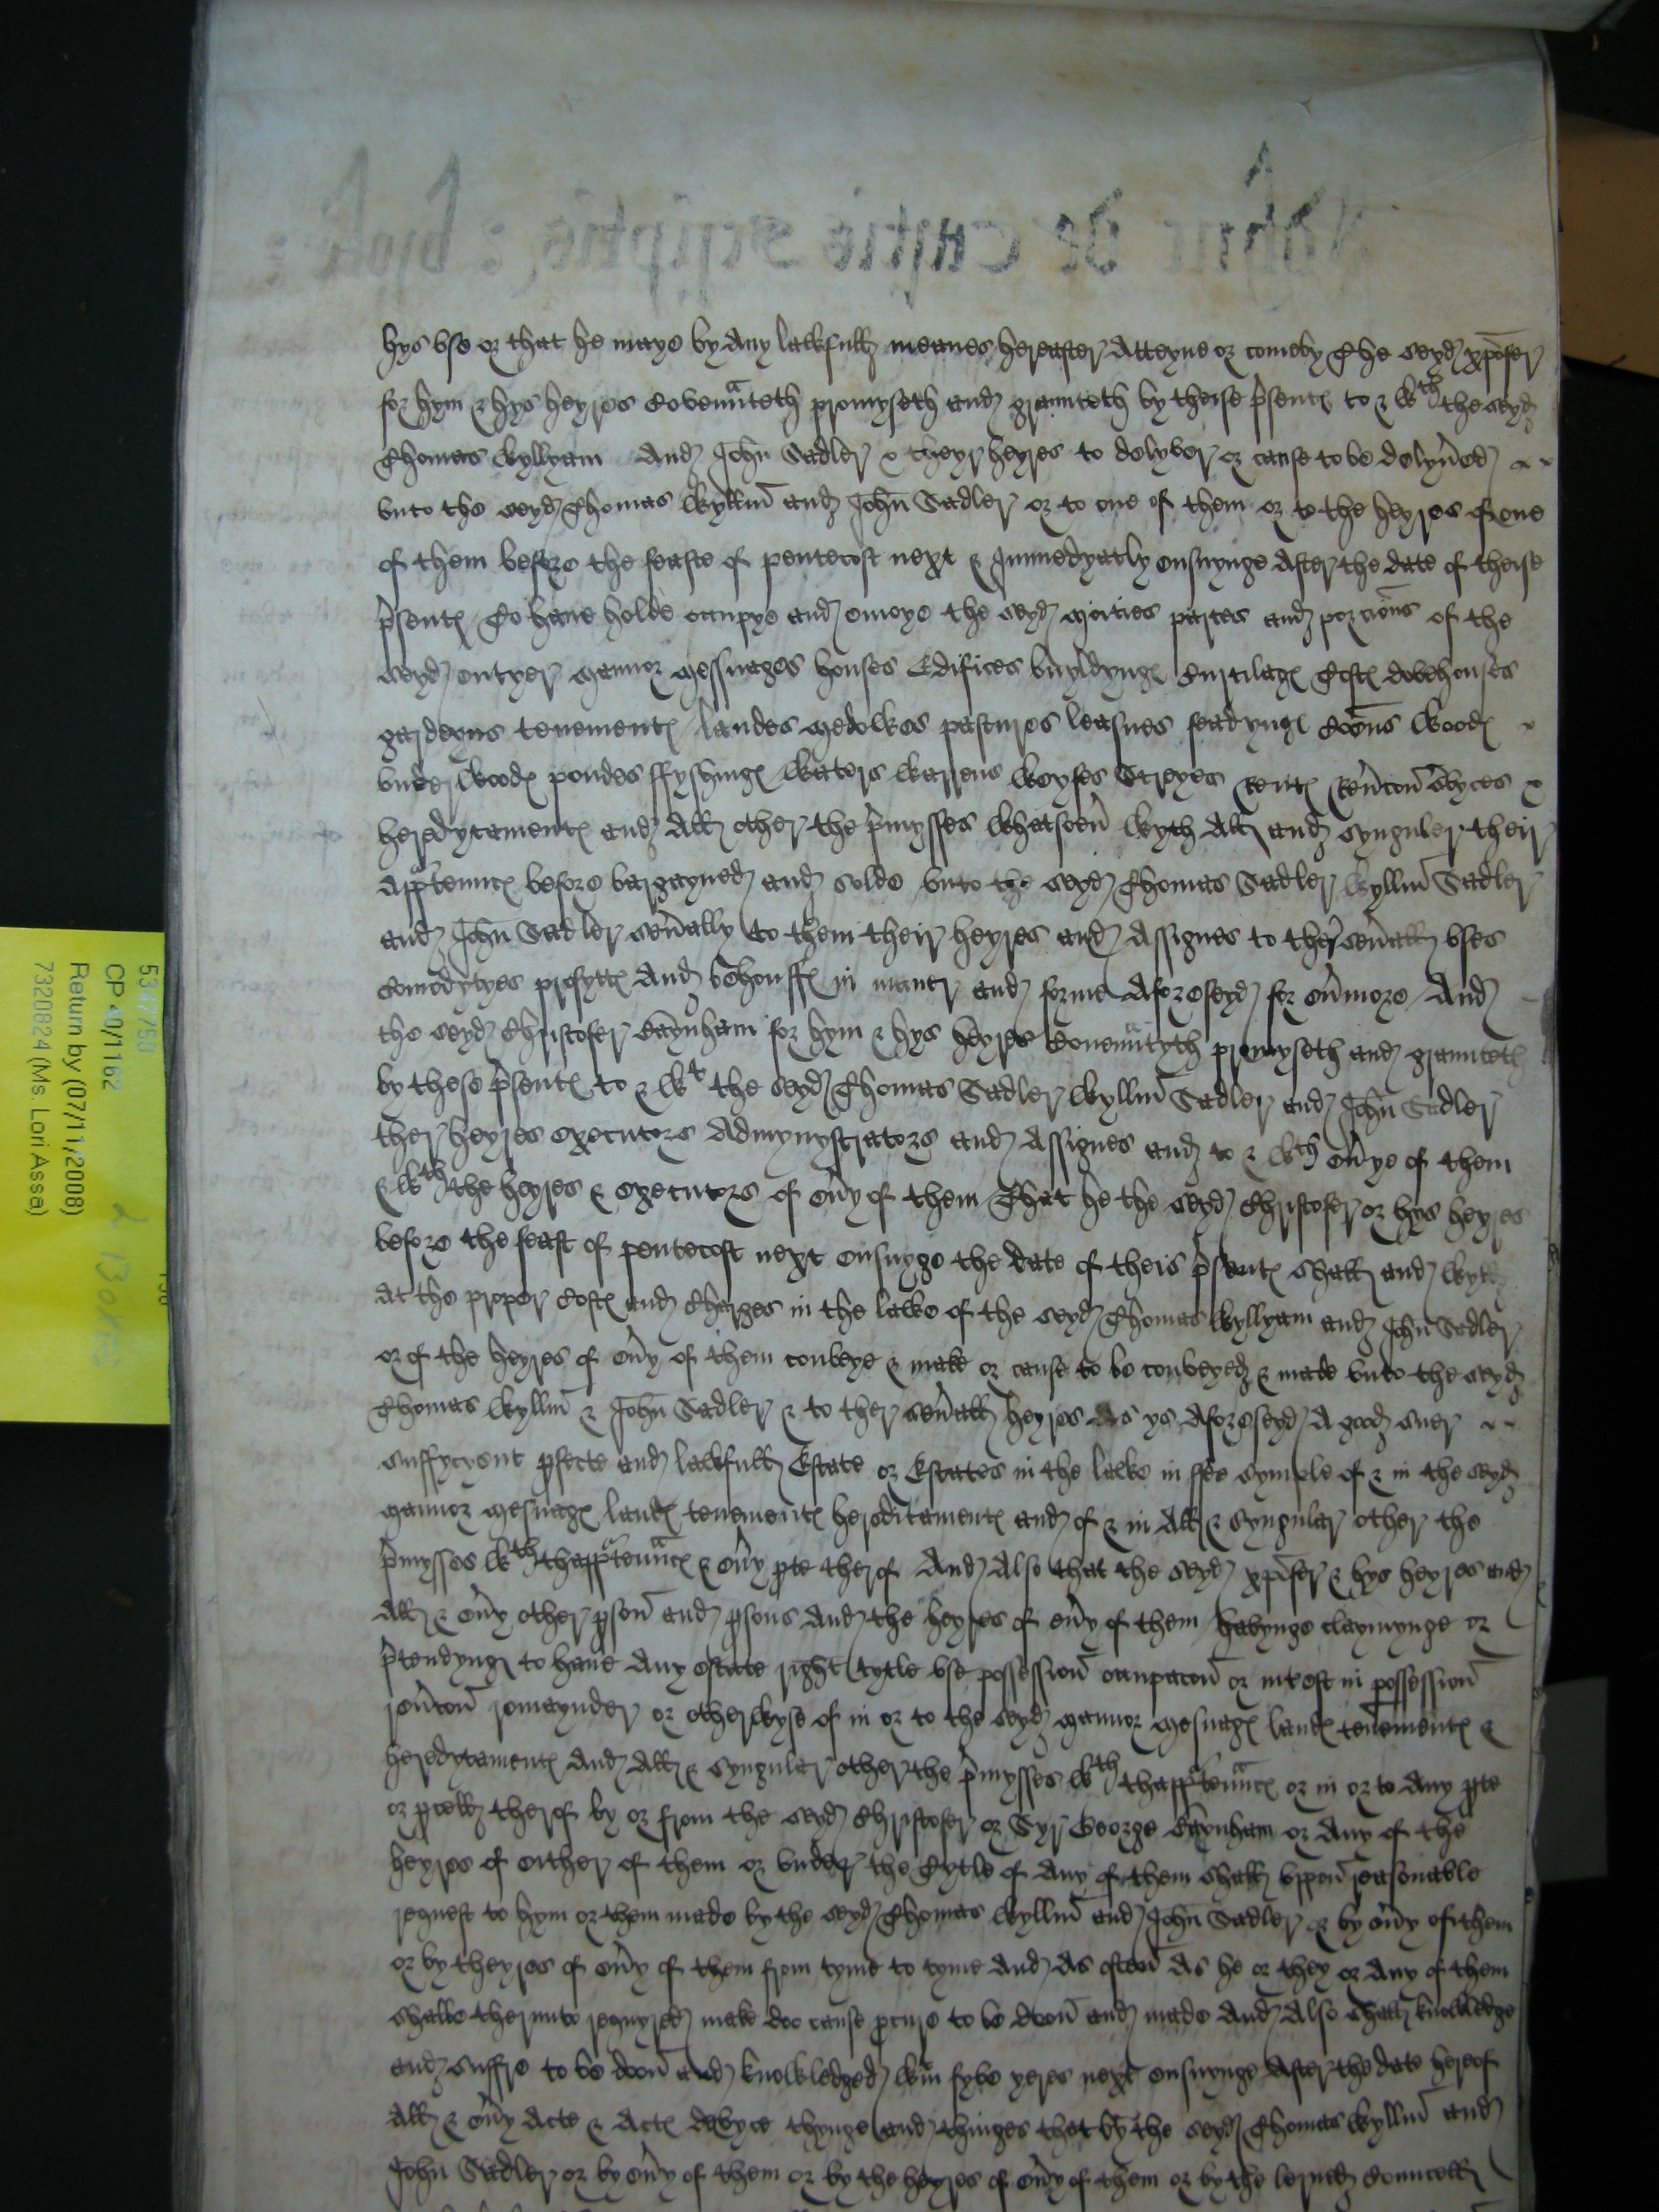 hys use or that he maye by Any lawfull meanes hereafter Atteyne or comeby The seyd xpofer
for hym & hys heyres Covenaunteth promyseth and graunteth by theise psentes to & wth the seyd
Thomas Wyllyam And John Sadler & theyr heyres to delyver or cause to be delyved
vnto the seyd Thomas Wyllm and John Sadler or to one of them or to the heyres of one
of them before the feaste of pentecost next & Immedyatly ensuynge After the date of theise
psentes To have holde occupye and enioye the seyd Moities partes and porcions of the
seyd entyer Mannor Messuages houses Edifices buyldynges Curtilages Toftes dovehouses
gardeyns tenementes landes Medowes pastures leasues feadynges Comens Woodes
vnderwoodes pondes ffyshinges Waters Warrens Weyfes Streyes Rentes Revercon Svyces &
heredytamentes and All other the pmysses Whatsoev Wyth All and synguler their
Apptennces before bargayned and solde vnto the seyd Thomas Sadler Wyllm Sadler
and John Sadler sevally to them their heyres and Assignes to ther sevall vses
Comodytyes profyttes And behouffes in maner and forme Aforeseyd for evmore And
the seyd Christofer Baynham for hym & hys heyres Covenauntyth promyseth and graunteth
by these psentes to & wt the seyd Thomas Sadler Wyllm Sadler and John Sadler
ther heyres executors Admynystrators and Assignes and to & wth evye of them
& wth the heyres & executors of evy of them That he the seyd Christofer or hys heyres
before the feast of pentecost next ensuyge the date of theis psentes shall and wyll
At the proper Costes and Charges in the lawe of the seyd Thomas Wyllyam and John Sadler
or of the heyres of evy of them conveye & make or cause to be conveyed & made vnto the seyd
Thomas Wyllm & John Sadler & to ther sevall heyres As ys Aforeseyd A good suer
suffycyent pfecte and lawfull Estate or Estates in the lawe in ffee symple of & in the seyd
Mannor Mesuages landes tenementes hereditamentes and of & in All & syngular other the
pmysses wth thapptennces & evy pte therof And Also that the seyd xpofer & hys heyres and
All & evy other pson and psons And the heyres of evy of them havynge claymynge or
ptendynge to have Any estate right tytle vse possession occupacon or intest in possession
revcon remaynder or otherwyse of in or to the seyd Mannor Mesuages landes tenementes &
heredytamentes And All & syngular other the pmysses wth thapptennces or in or to Any pte
or pcell therof by or from the seyd Christofer or Syr George Baynham or Any of the
heyres of either of them or vnder the Tytle of Any of them shall vppon reasonable
request to hym or them made by the seyd Thomas Wyllm and John Sadler or by evy of them
or by theyres of evy of them from tyme to tyme And As often As he or they or Any of them
shalbe therunto requyred make doo cause pcure to be doon and made And Also shall knowledge
and suffre to be doon and knowledged wtin fyve yeres next ensuynge After the date hereof
All & evy Acte & Actes devyce thynge and thinges that by the seyd Thomas Wyllm and
John Sadler or by evy of them or by the heyres of evy of them or by the lerned Councell
CP 40/1162
2 Boxes
Return by (07/11/2008)
7320824 (Ms. Lori Assa)